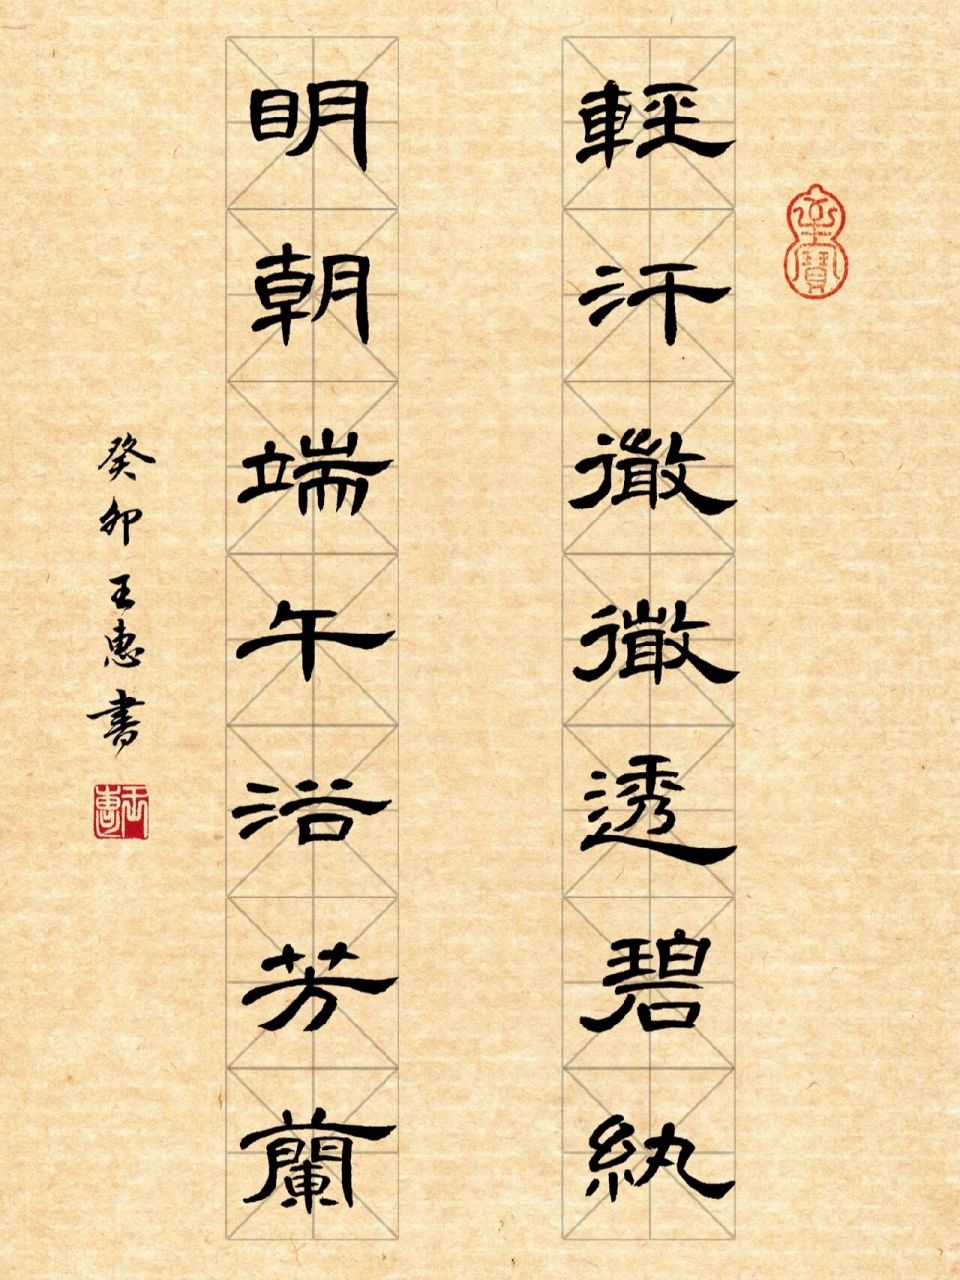 輕汗微微透碧紈
明朝端午浴芳蘭
癸卯王惠書
王惠